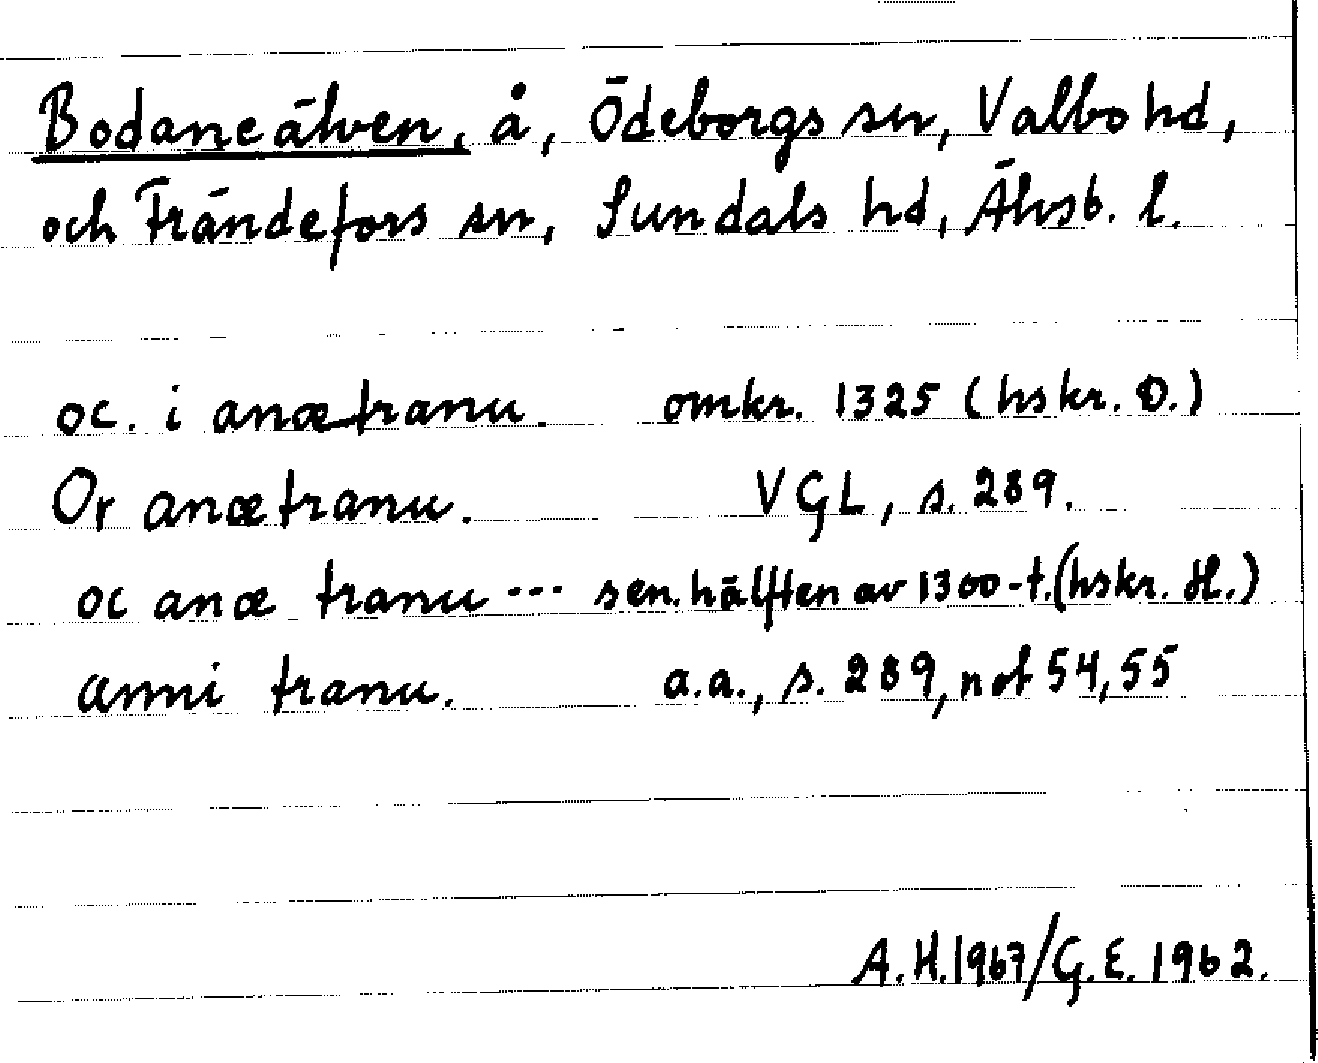 Bodaneälven, å, Ödeborgs sn, Valbo hd,
och Frändefors sn, Sundals hd, Älvsb. l.
oc. i anætranu. omkr. 1325 (hskr. D.)
Or anætranu. VGL, s. 289.
oc anæ tranu --- sen. hälften av 1300-t. (hskr. H.)
anni tranu. a.a., s. 289, not 54, 55
A.H. 1967/G.E. 1962.